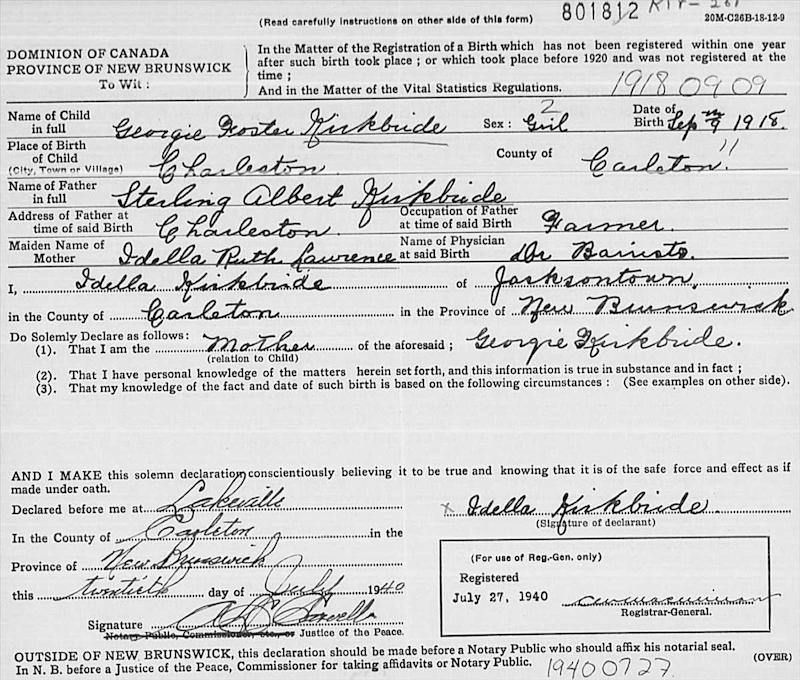 (Read carefully instructions on other side of this form) 801812
20M-C26B-18-12-9
DOMINION OF CANADA
PROVINCE OF NEW BRUNSWICK
To Wit:
In the Matter of the Registration of a Birth which has not been registered within one year
after such birth took place; or which took place before 1920 and was not registered at the
time;
And in the Matter of the Vital Statistics Regulations.
1918 09 09
Name of Child in full Georgie Foster Kirkbride Sex: 2 Girl Date of Birth Sep 9 1918.
Place of Birth of Child (City, Town or Village) Charleston County of Carleton "
Name of Father in full Sterling Albert Kirkbride
Address of Father at time of said Birth Charleston. Occupation of Father at time of said Birth Farmer.
Maiden Name of Mother Idella Ruth Lawrence Name of Physician at said Birth Dr
I, Idella Kirkbride of Jacksontown,
in the County of Carleton in the Province of New Brunswick
Do Solemnly Declare as follows:
(1). That I am the Mother of the aforesaid; Georgie Kirkbride.
(relation to Child)
(2). That I have personal knowledge of the matters herein set forth, and this information is true in substance and in fact;
(3). That my knowledge of the fact and date of such birth is based on the following circumstances: (See examples on other side).
AND I MAKE this solemn declaration conscientiously believing it to be true and knowing that it is of the safe force and effect as if
made under oath.
Declared before me at Lakeville
x Idella Kirkbride.
(Signature of declarant)
In the County of Carleton in the
Province of New Brunswick
this twntieth day of July 1940
Signature
Notary Public, Commissioner, etc., or Justice of the Peace.
(For use of Reg.-Gen. only)
Registered
July 27, 1940
Registrar-General.
OUTSIDE OF NEW BRUNSWICK, this declaration should be made before a Notary Public who should affix his notarial seal.
In N. B. before a Justice of the Peace, Commissioner for taking affidavits or Notary Public. 19400727 (OVER)